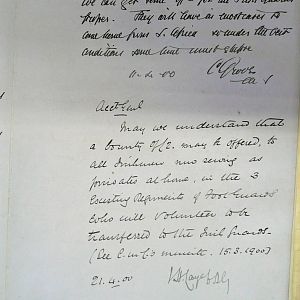 we can get some off for the Irish Guards
proper. They will have as successes to
come home from S. Africa so under the best
conditions some time must elapse
11.4.00 C Grove
AG 1
Acct Genl
May we understand that
a bounty of £2. may be offered, to
all Irishmen now serving as
privates at home, in the 3
Existing Regiments of Foot Guards
who will volunteer to be
transferred to the Irish Guards.
(See C. in C's minute. 15.3.1900)
21.4.00